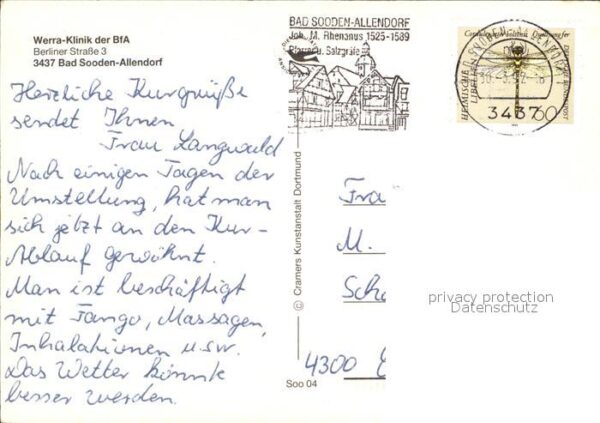 Werra-Klinik der BfA
Berliner Straße 3
3437 Bad Sooden-Allendorf
Herzliche Kurgrüße
sendet Ihnen
Frau Langwald
Nach einigen Tagen der
Umstellung, hat man
sich jetzt an den Kur-
Ablauf gewöhnt.
Man ist beschäftigt
mit Fango, Massagen,
Inhalationen usw.
Das Wetter könnte
besser werden.
BAD SOODEN-ALLENDORF
Joh. M. Rhenanus 1525-1589
Pfarrer u. Salzgräfe
Cramers Kunstanstalt Dortmund
©
Soo 04
HEIMISCHE
LIBELLEN
60
3437
Fra
M.
Sch
4300
privacy protection
Datenschutz